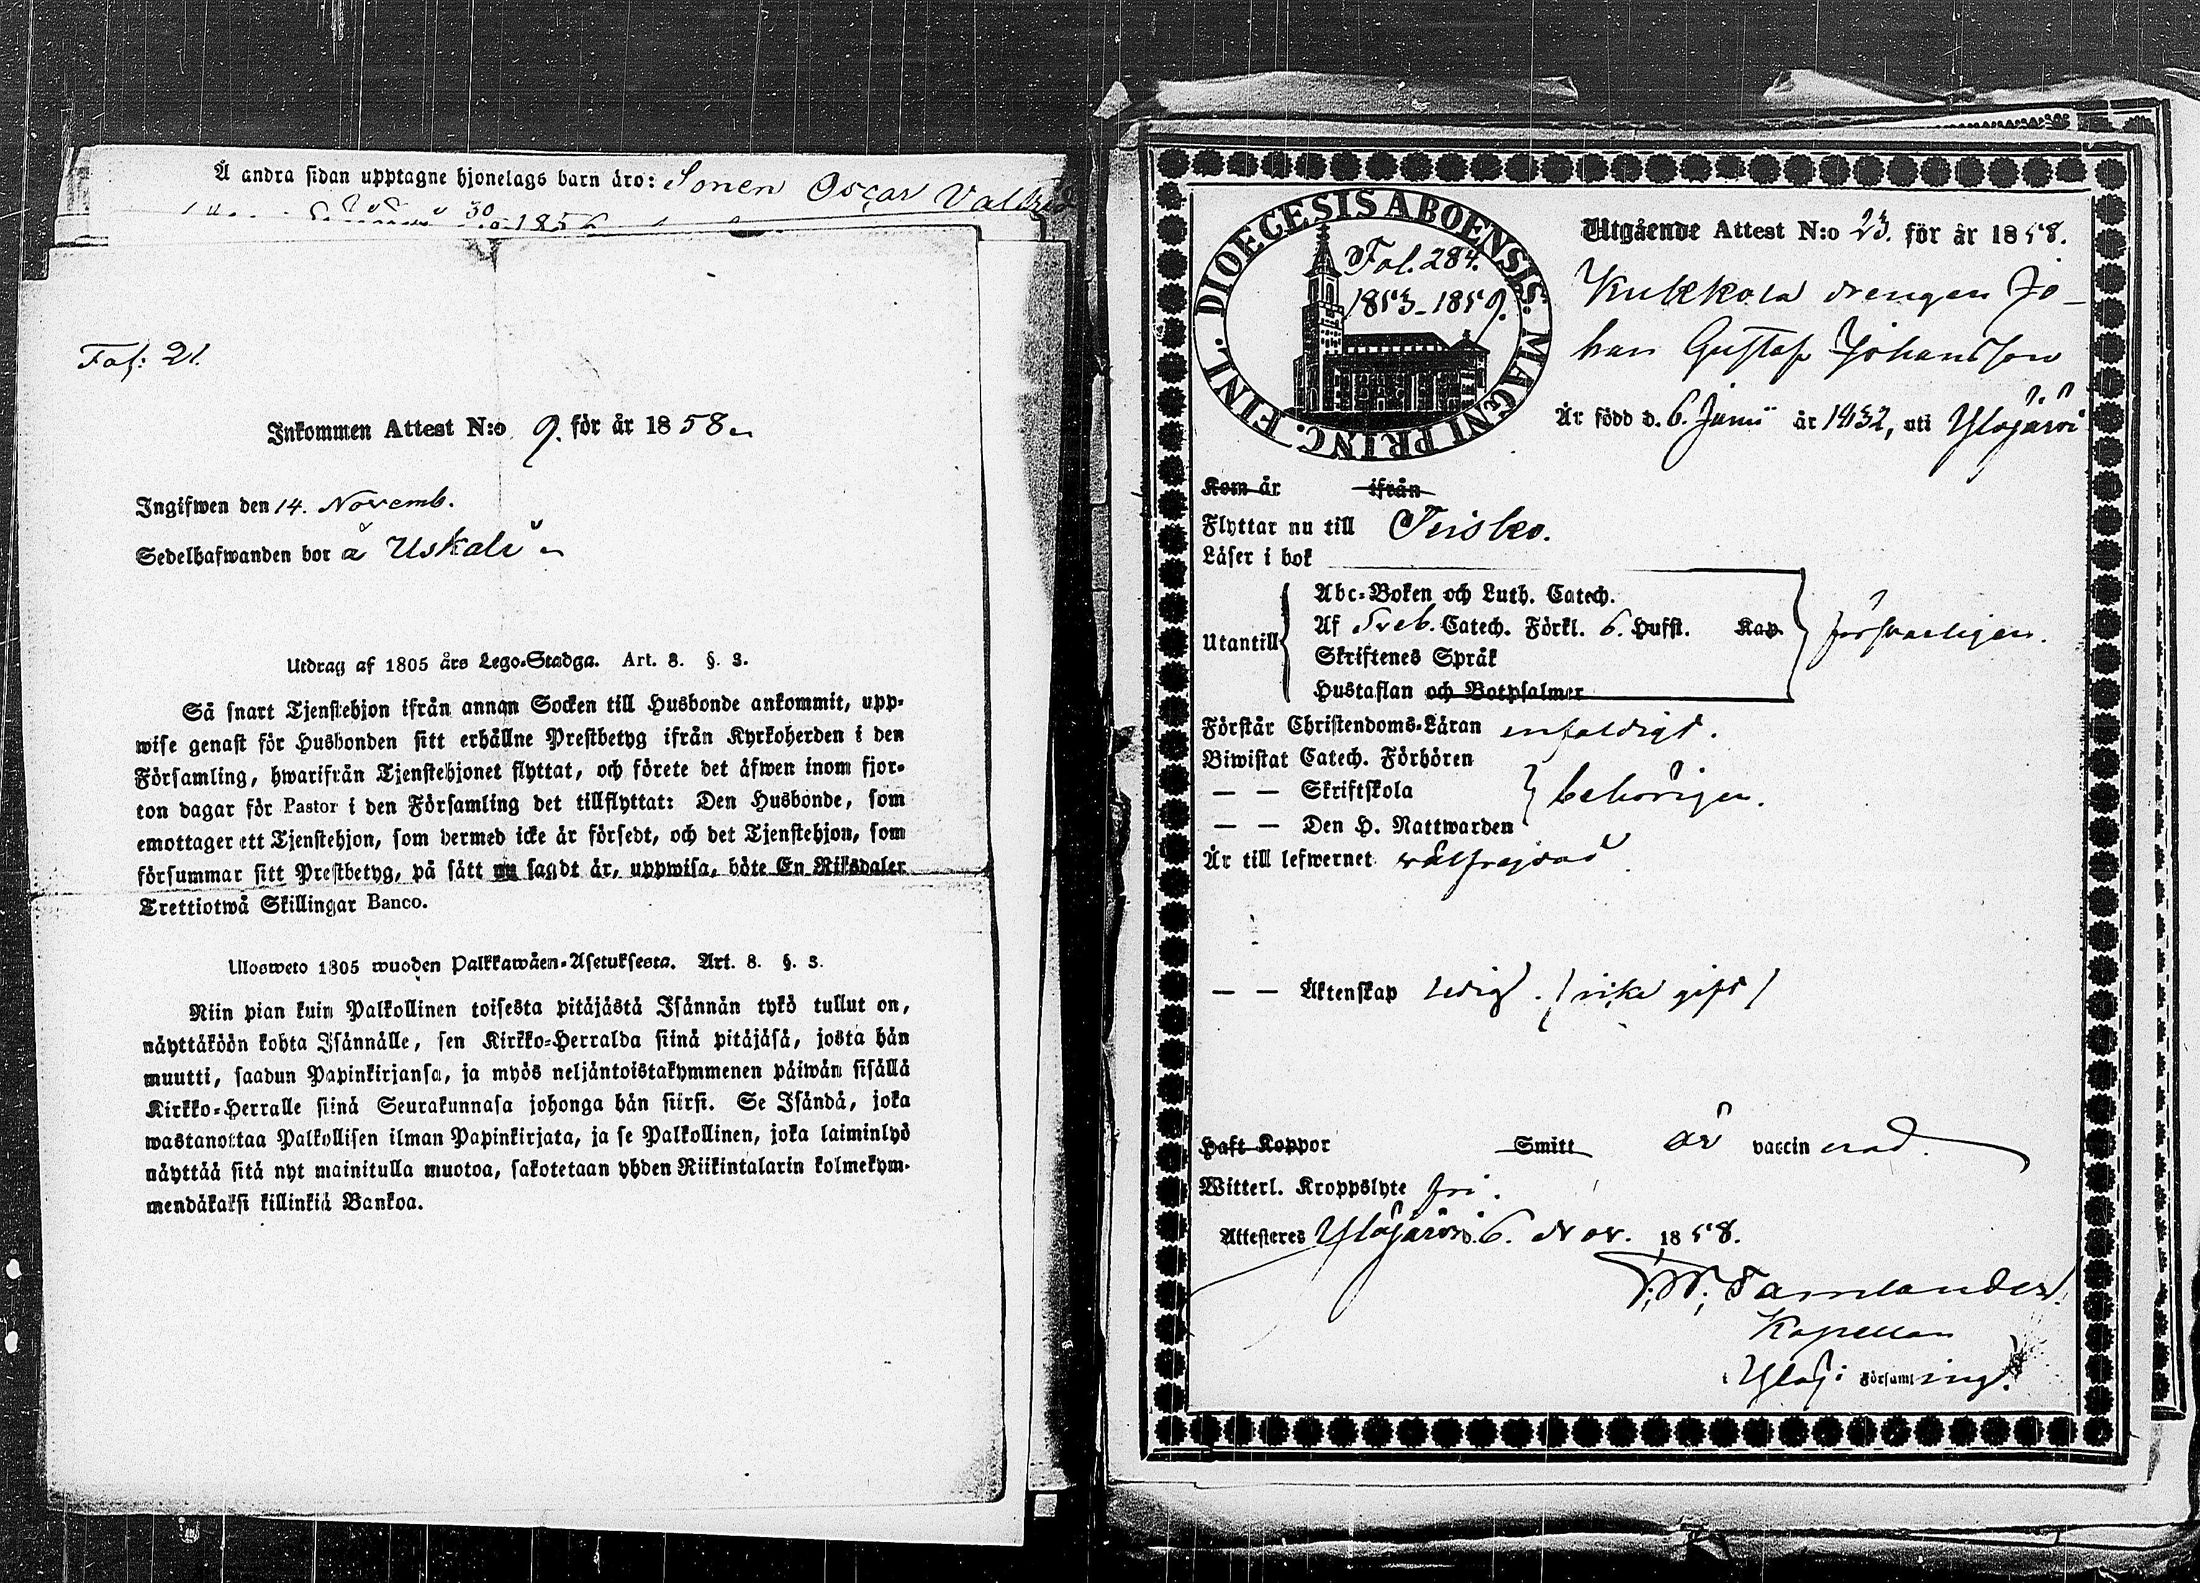 Å andra sidan upptagne hjonelags barn äro: Sonen Oscar
30 1856
Fol: 21.
Inkommen Attest N:o 9. för år 1858
Ingifwen den 14. Novemb.
Sedelhafwanden bor å Uskali
Utdrag af 1805 års Lego-Stadga. Art. 8. §. 3.
Så snart Tjenstehjon ifrån annan Socken till Husbonde ankommit, upp-
wise genast för Husbonden sitt erhållne Prestbetyg ifrån Kyrkoherden i den
Församling, hwarifrån Tjenstehjonet flyttat, och förete det äfwen inom fjor-
ton dagar för Pastor i den Församling det tillflyttat: Den Husbonde, som
emottager ett Tjenstehjon, som dermed icke är försedt, och det Tjenstehjon, som
försummar sitt Prestbetyg, på sätt nu sagdt är, uppwisa, böte En Riksdaler
Trettiotwå Skillingar Banco.
Ulosweto 1805 wuoden Palkkawäen-Asetuksesta. Art. 8. §. 3.
Niin pian kuin Palkollinen toisesta pitäjästä Isännän tykö tullut on,
näyttäköön kohta Isännälle, sen Kirkko-Herralda siinä pitäjäsä, josta hän
muutti, saadun Papinkirjansa, ja myös neljäntoistakymmenen päiwän sisällä
Kirkko-Herralle siinä Seurakunnasa johonga hän siirsi. Se Isändä, joka
wastanottaa Palkollisen ilman Papinkirjata, ja se Palkollinen, joka laiminlyö
näyttää sitä nyt mainitulla muotoa, sakotetaan yhden Riikintalarin kolmekym-
mendäkaksi killinkiä Bankoa.
DIOECESIS ABOENSIS. MAGNI PRINC. FINL.
Fol. 284.
1853-1859.
Utgående Attest N:o 23. för år 1858.
Kukkola drengen Jo-
han Gustaf Johansson
Är född d. 6. Junii år 1832, uti Ylöjärvi
Kom år ifrån
Flyttar nu till Teisko.
Läser i bok
Utantill
Abc-Boken och Luth. Catech.
Af Sveb. Catech. Förkl. 6. Hufst. Kap.
Skriftenes Språk
Hustaflan och Botpsalmer
försvarligen.
Förstår Christendoms-Läran enfaldigt.
Biwistat Catech. Förhören
— — Skriftskola
— — Den H. Nattwarden
behörigen.
Är till lefwernet välfrejdad
— — Äktenskap ledig. (icke gift)
Haft Koppor Smitt är vaccinerad.
Witterl. Kroppslyte fri.
Attesteres Ylöjärvi d. 6. Nov. 1858.
Tamlander.
Kapellan
i Ylöj: Församling.